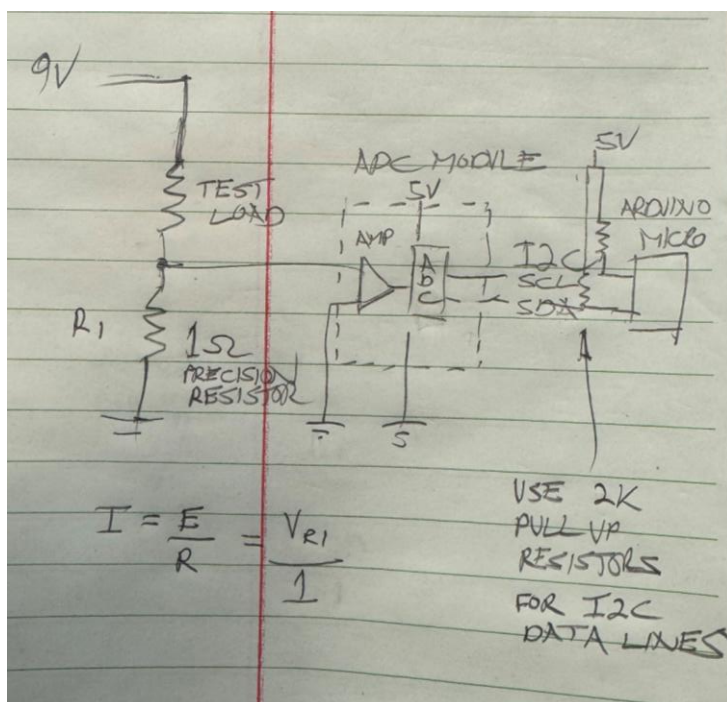 9V
TEST
LOAD
R1
1Ω
PRECISION
RESISTOR
ADC MODULE
5V
AMP
ADC
5V
ARDUINO
MICRO
I2C
SCL
SDA
I = E/R = VR1/1
USE 2K
PULL UP
RESISTORS
FOR I2C
DATA LINES